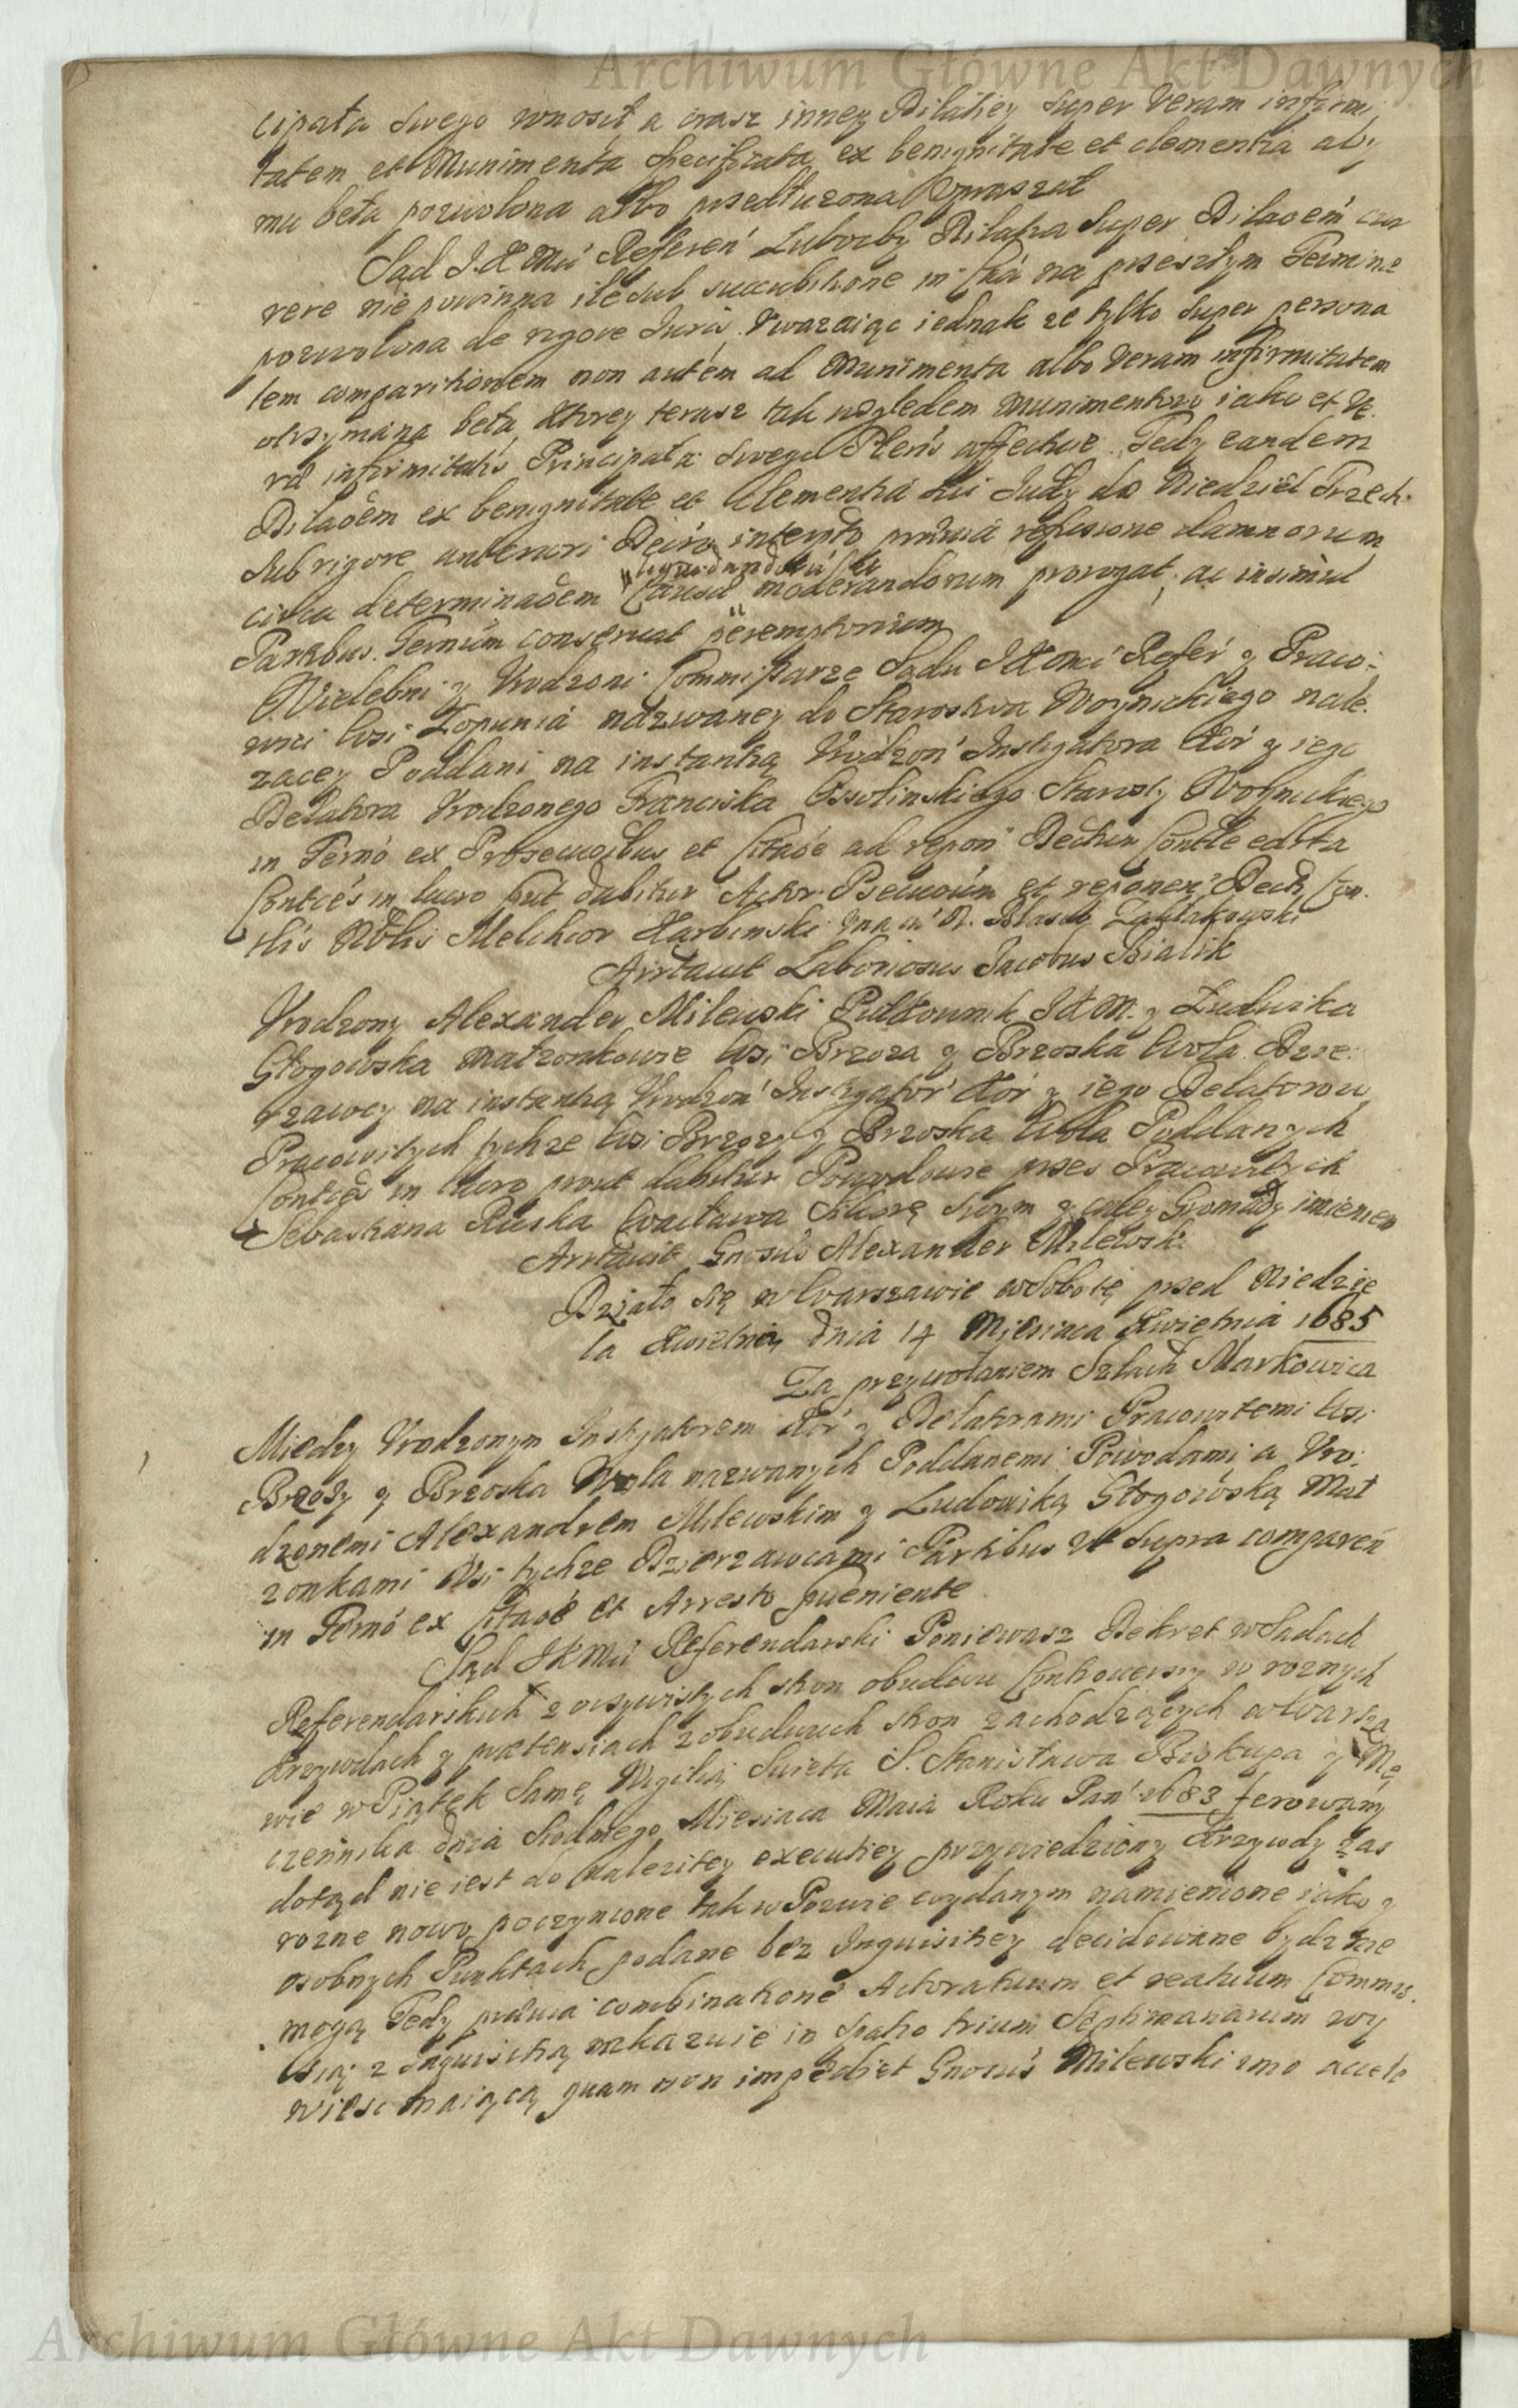 Archiwum Główne Akt Dawnych
cipała swego wnosił a oraz inney Dilatiey super veram infirmi
tatem et Munimenta specificata ex benignitate et clementia aby
mu beła pozwolona albo przedłuzona upraszał
Sąd J K Mci Referen Luboby Dilatia super Dilaoem cur
rere niepowinna ile sub succubitione in Cná na przeszłym Terminie
pozwolona de rigore Juris, Uwazaiąc iednak ze tylko super persona
lem comparitionem non autem ad Munimenta albo veram infirmitatem
otrzymána beła, ktorey terasz tak względem Munimentow iako et ve
ra infirmitatis Principała swego Plens affectuie. Tedy eandem
Dilaoem ex benignitate et clementia sui Judy do Niedziel Trzech
sub rigore anteriori Decro intento praevia refusione damnorum
liquidandoru
circa determinaoem Causae moderandorum prorogat, ac insimul
Partibus Ternum conservat peremptorium
Wielebni y Urodzoni Commissarze Sadu J K Mci Refer y Praco
wici wsi Łopunia názwaney do Starostwa Woynickiego nale
zacey Poddani na instantią Urodzon Instigatora Kor y iego
Delatora Urodzonego Franciszka Ossolinskiego Starosty Woynickiego
in Termo ex Prosecuoibus et Citaoe ad repon Dechu Contle edita
Contces in lucro put dabitur Actor Psecuoum et reponen Dech Con
tlis Nobilis Melchior Karbinski
Arrtavit Laboriosus Jacobus Bialik
Urodzony Alexander Milewski Pułkownik J K M. y Ludwika
Głogowska Małzonkowie wsi Brzoza y Brzoska Wola Dzie
rzawcy na instantią Urodzon Instigator Kor y iego Delatorow
Pracowitych tychze wsi Brzozy y Brzoska Wola Poddanych
Contces in lucro prout dabitur Powodowie przes Pracowitych
Sebastiana Ruska Wacława Sikorę swym y całey Gromady imieniem
Arrtavit Gnosus Alexander Milewski
Działo się w Warszawie w Sobotę przed Niedzie
la Kwietnią dnia 14 Miesiaca Kwietnia 1685
Za przywołaniem Szlach Markowica
Miedzy Urodzonym Instigatorem Kor y Delatorami Pracowitemi wsi
Brzozy y Brzoska Wola nazwanych Poddanemi Powodami a Uro
dzonemi Alexandrem Milewskim y Ludowiką Głogowską Mał
zonkami wsi tychze Dzierzawcami Partibus ut supra comparen
in Termo ex Citaoe et Arresto pueniente
Sąd J K Mci Referendarski Poniewasz Dekret w Sadach
Referendarskich z oczywistych stron obudwu Controwersy w roznych
krzywdach y praetensiach z obudwuch stron zachodzących w Warsza
wie w Piątek Samę Wigilią Swieta S. Stanisława Biskupa y Mę
czennika dnia siodmego Miesiaca Maia Roku Pan 1683 ferowany
dotąd nie iest do nalezitey executiey przywiedziony Krzywdy zas
rozne nowo poczynione tak w Pozwie wydanym namienione iako y
osobnych Punktach podane bez Inquisitiey decidowane bydz nie
mogą Tedy praevia combinatione Actoratuum et reatuum Commis
sią z Inquisitią nakazuie in spatio trium Septimanarum wy
wiesc maiącą quam non impediet Gnosus Milewski imo accele
Archiwum Główne Akt Dawnych